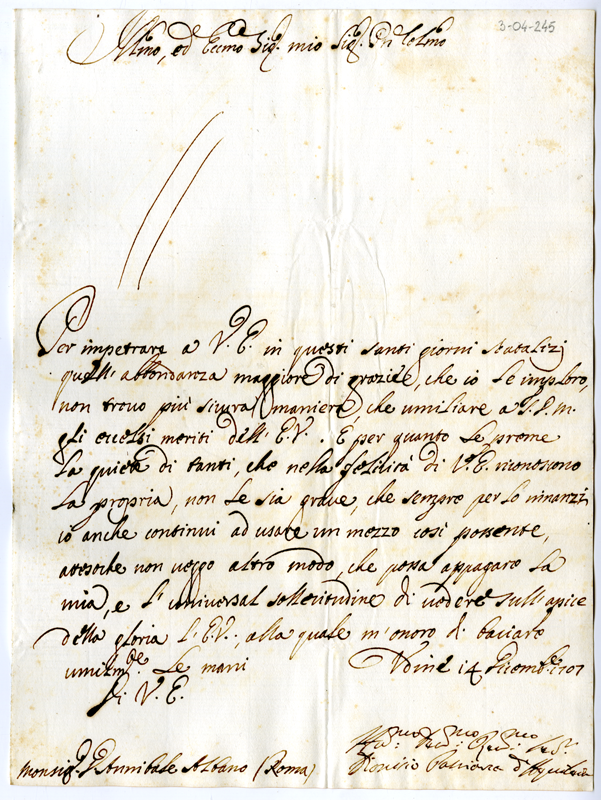 3-04-245
Illmo, ed Eccmo Sig.r mio Sig.r Colmo
Per impetrare a V. E. in questi santi giorni Natalizj
quell' abbondanza maggiore di grazie, che io le imploro,
non trovo più sicura maniera, che umiliare a S. D. M.
gli eccelsi meriti dell' E. V. . E per quanto le preme
la quiete di tanti, che nella felicità di V. E. riconoscono
la propria, non le sia grave, che sempre per lo innanzi
io anche continui ad usare un mezzo così possente,
atteso che non veggo altro modo, che possa appagare la
mia, e l' universal sollecitudine di vedere sull' apice
della gloria l' E. V., alla quale m' onoro di baciare
umilmte le mani
Udine 14 Dicembre 1707
Di V. E.
Dionisio Patriarca d' Aquileia
Monsig.r Annibale Albano (Roma)